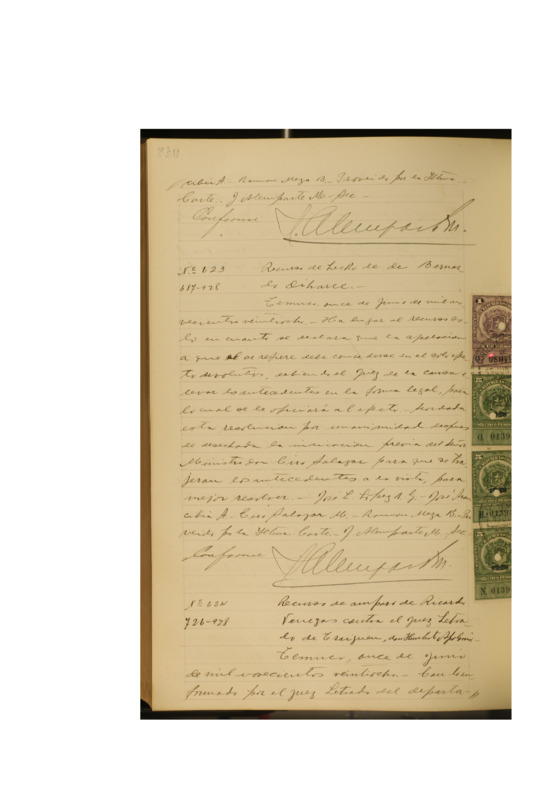 cibia A.- Ramon Meza B.- Proveido por la Iltma.
Corte.- J Alemparte M. Sec.-
Conforme
J. Alemparte M.
Nº 123 Recurso de hecho de de Bernar
617-928 do Etharce.-
Temuco, once de Junio de mil no
vecientos veintiocho.- Ha lugar al recurso so-
lo en cuanto se declara que la apelacion
a que se refiere debe concederse en el solo efec-
to devolutivo, debiendo el Juez de la causa
elevar los antecedentes en la forma legal, para
lo cual se le oficiará al efecto. Acordada
esta resolucion por unanimidad despues
de desechada la indicacion previa del Señor
Ministro don Ciro Salazar para que se tra
jeran los antecedentes a la vista, para
mejor resolver.- José L. Lopez R. G.- José Arra
cibia A.- Ciro Salazar M.- Ramon Meza B.- Pro
veido por la Iltma. Corte.- J Alemparte M. Sec
Conforme
J. Alemparte M.
Nº 124 Recurso de amparo de Ricardo
726-928 Venegas contra el Juez Letra
do de Traiguen, don
Temuco, once de Junio
de mil novecientos veintiocho.- Con lo in
formado por el Juez Letrado del departa-